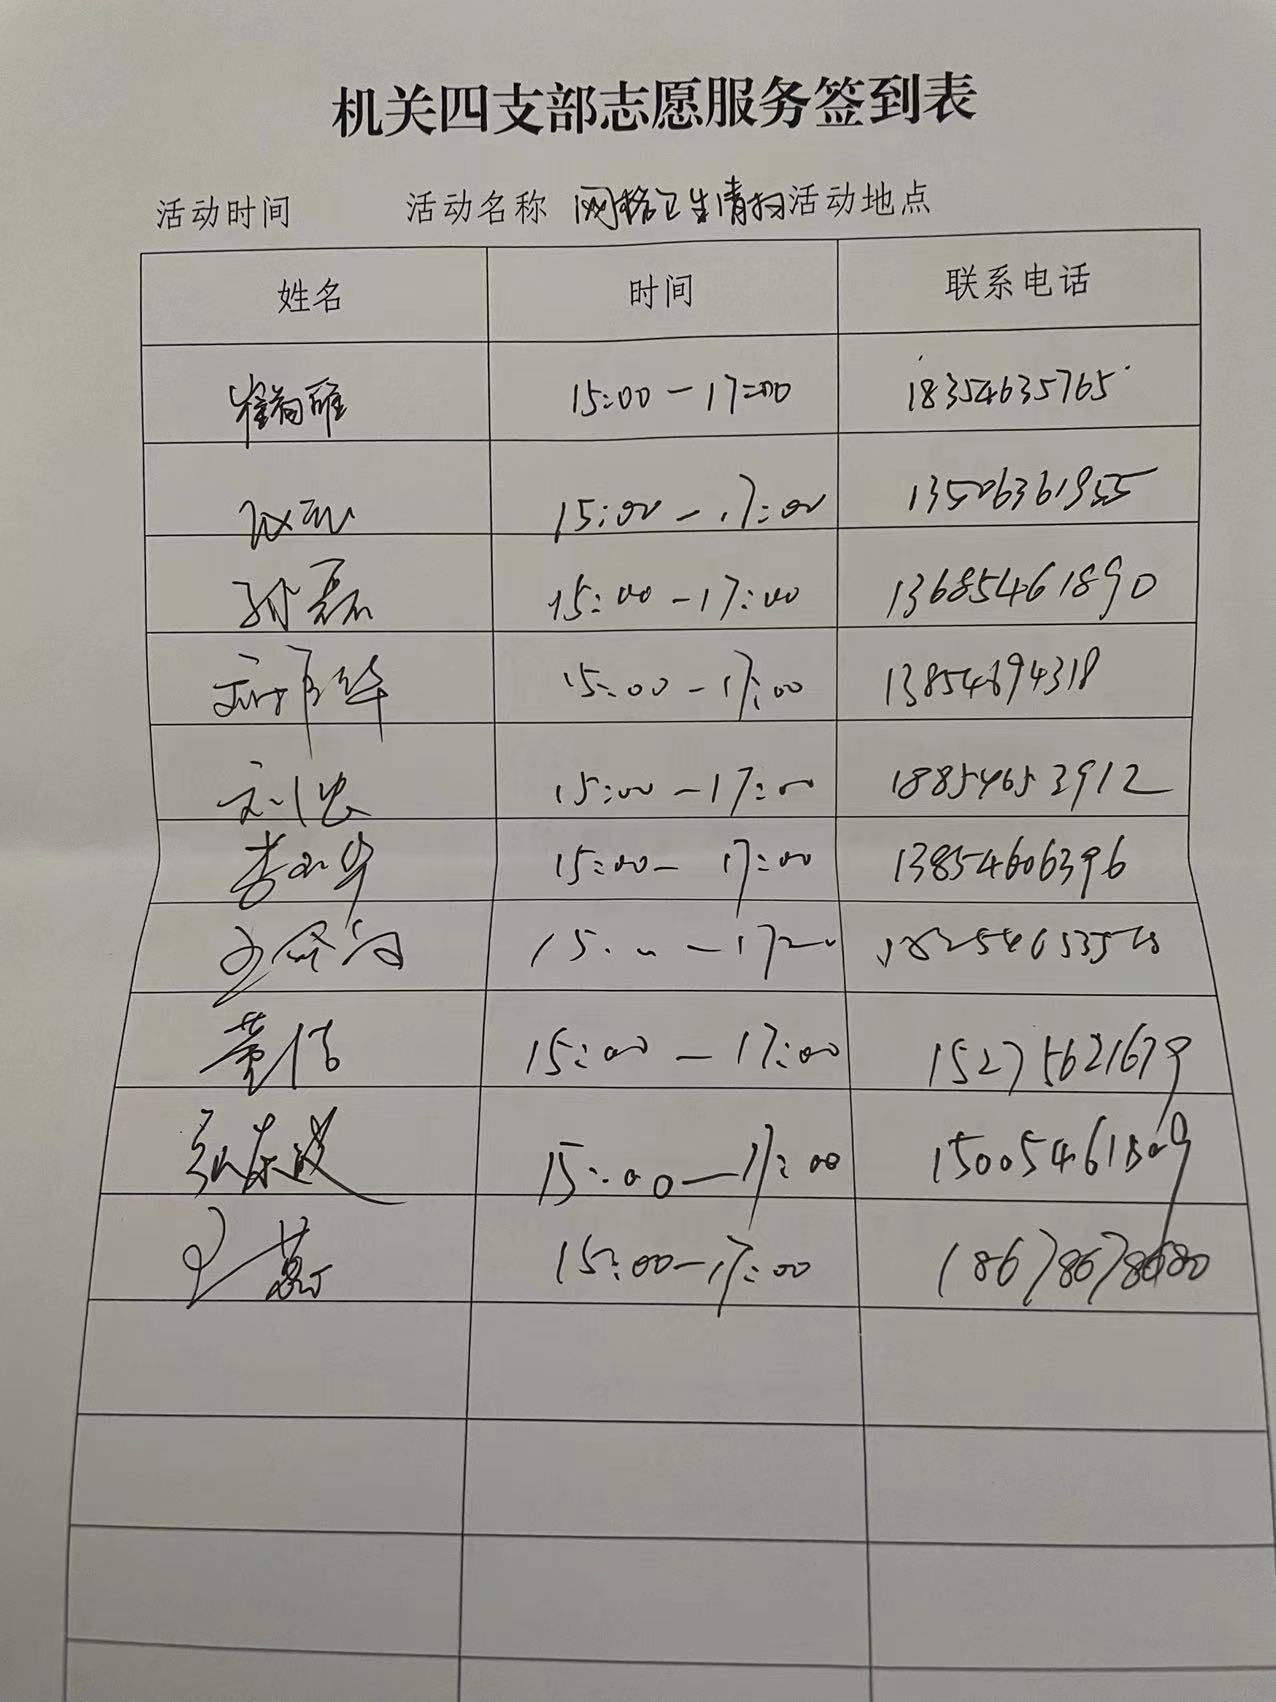 机关四支部志愿服务签到表
活动时间 活动名称 网格卫生清扫 活动地点
姓名 时间 联系电话
15:00-17:00 18354635765
15:00-17:00 13506361955
孙磊 15:00-17:00 13685461890
15:00-17:00 13854694318
刘忠 15:00-17:00 18854653912
李小华 15:00-17:00 13854606396
15:00-17:00
董倩 15:00-17:00 15275621679
张东波 15:00-17:00 15005461809
王慕 15:00-17:00 18678678680